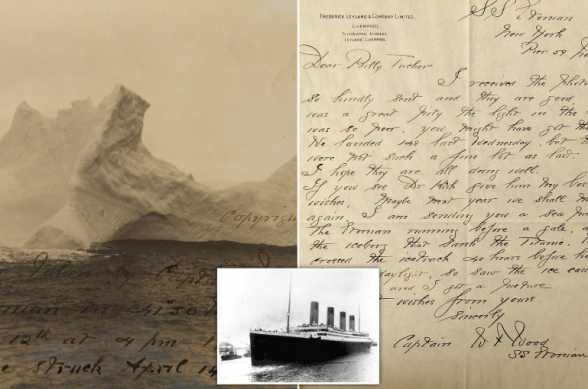 Copyright
41°50'
12th at 4 pm
struck April 14
FREDERICK LEYLAND & COMPANY LIMITED.
LIVERPOOL.
TELEGRAPHIC ADDRESS:
LEYLAND, LIVERPOOL.
S.S. Etonian
New York
Pier 59
Dear Billy Tucker
I received the photo
so kindly sent and they are good.
was a great pity the light in the
was so poor. you might have got the
We landed last Wednesday. but
were not such a fine lot as last.
I hope they are all doing well.
If you see Dr give him my best
wishes. Maybe next year we shall m
again. I am sending you a sea pic
the Etonian running before a gale. a
the iceberg that sank the Titanic.
crossed the icetrack 40 hours before he
daylight. so saw the ice eas
and I got a picture
wishes from yours
Sincerly
Captain W F Wood
SS Etonian